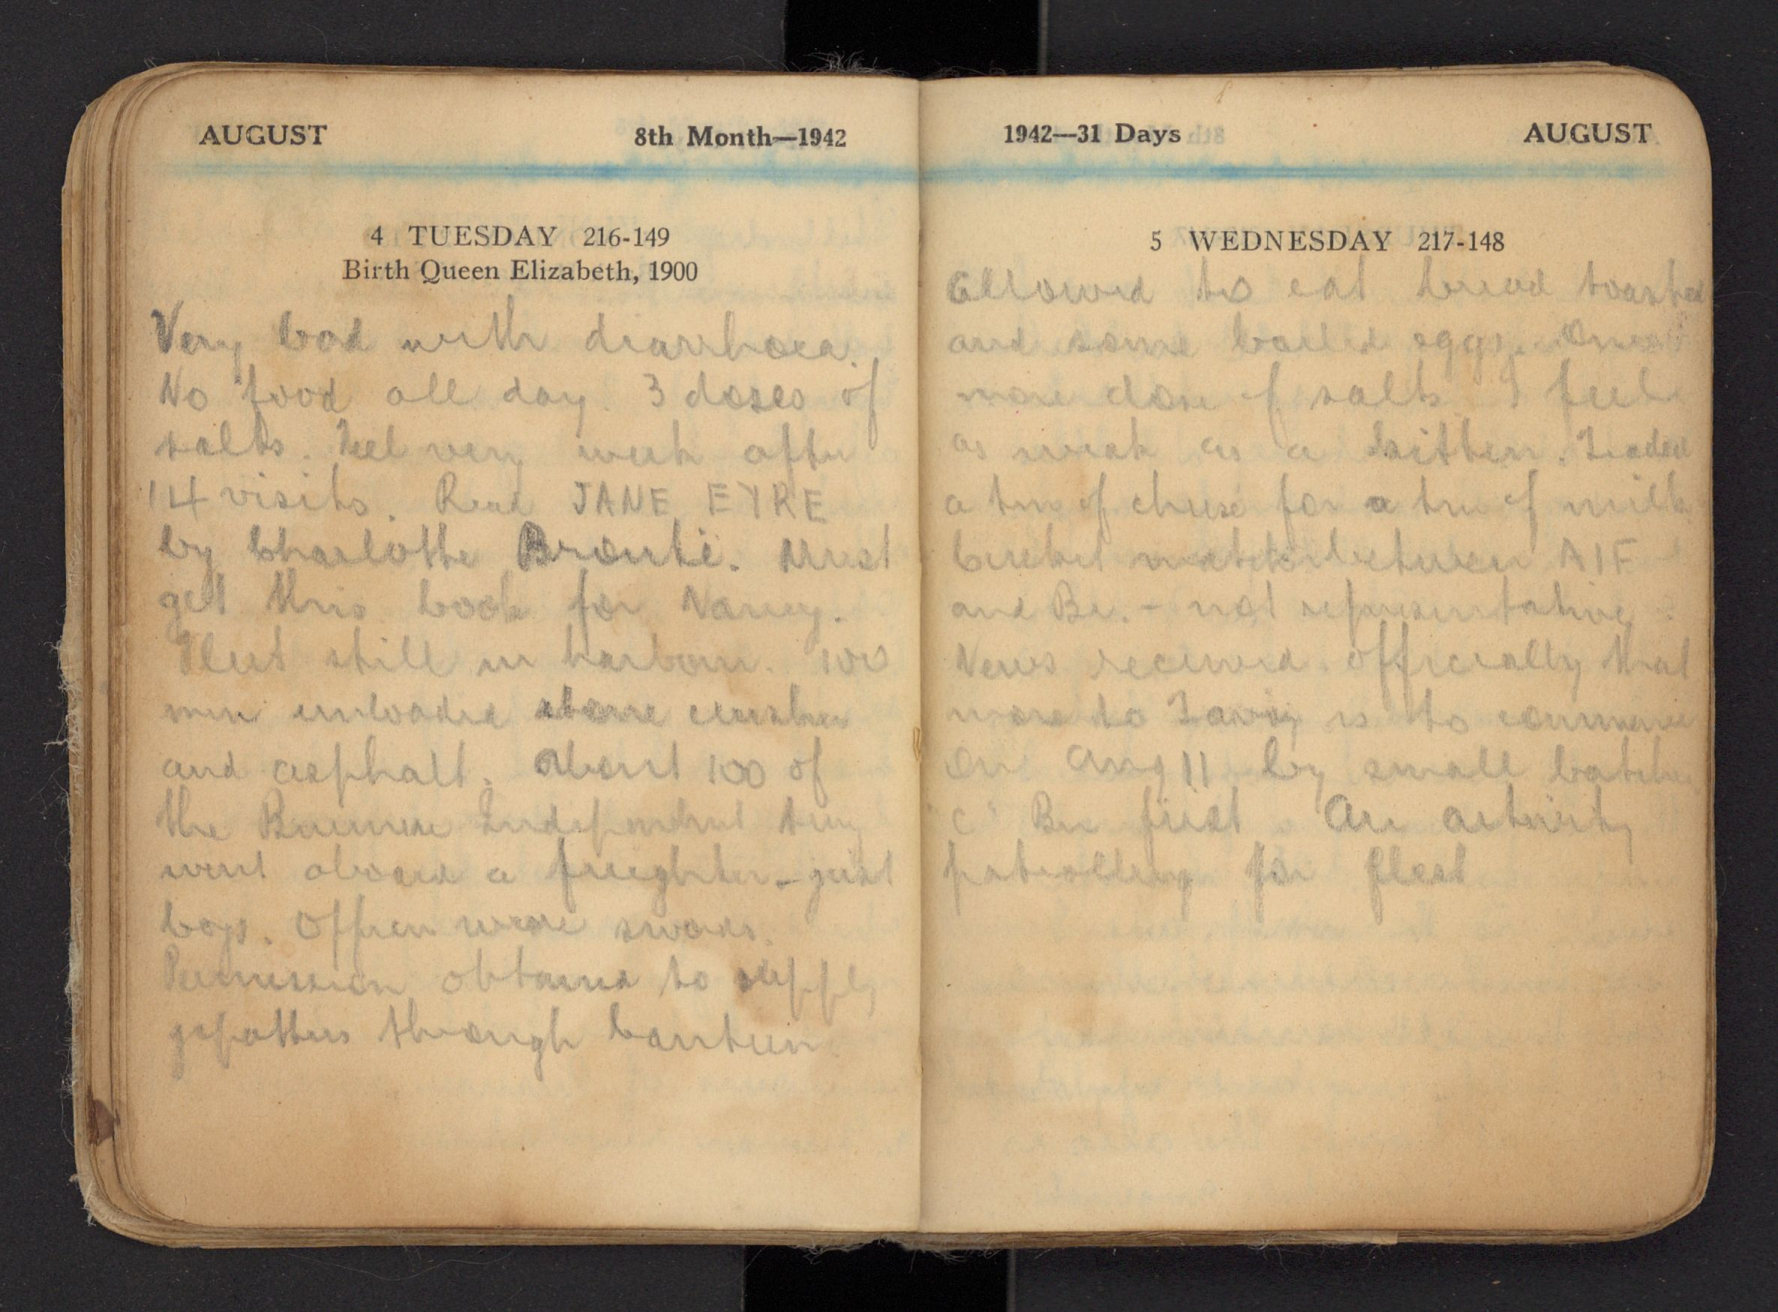 AUGUST 8th Month—1942
4 TUESDAY 216-149
Birth Queen Elizabeth, 1900
Very bad with diarrhoea.
No food all day. 3 doses of
salts. Feel very weak after
14 visits. Read JANE EYRE
by Charlotte Brontë. Must
get this book for Nancy.
Fleet still in harbour. 100
men unloaded stone crusher
and asphalt. About 100 of
the Burmese Independent
went aboard a freighter - just
boys. Officers wore swords.
Permission obtained to supply
through Canteen.
1942—31 Days AUGUST
5 WEDNESDAY 217-148
Allowed to eat bread toasted
and some boiled eggs. One
more dose of salts I feel
as weak as a kitten. Traded
a tin of cheese for a tin of milk
Cricket match between AIF
and Br. - not representative
News received officially that
move to Tavoy is to commence
on Aug 11 by small batches
C Bn first. Air activity
patrolling for fleet